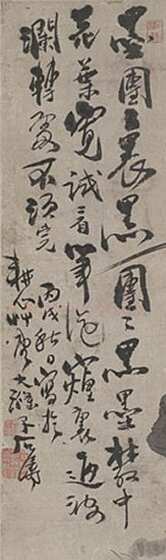 黑團〻裏黑團〻黑墨叢中
花葉寬試看筆從煙裏過波
瀾轉處不須完 丙戌秋日寫於
耕心艸堂大滌子石濤